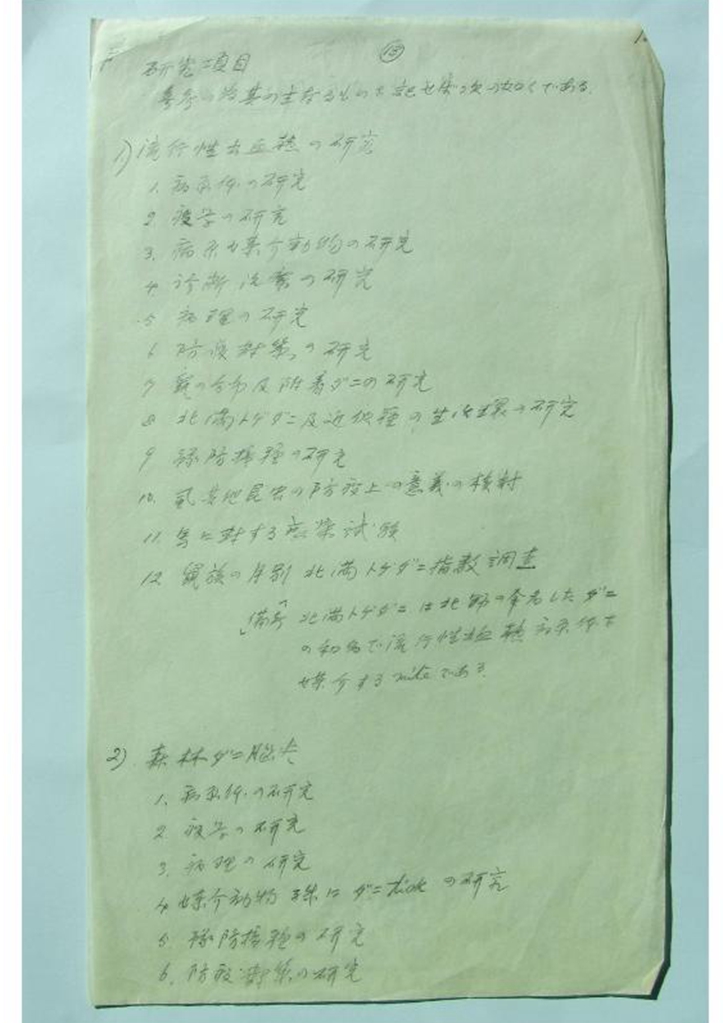 ⑬
研究項目
1) 流行性出血熱の研究
1. 病原体の研究
2. 疫学の研究
3. 病原体媒介動物の研究
4 診断治療の研究
5 病理の研究
6 防疫対策の研究
7 鼠の分布及附着ダニの研究
8 北満トゲダニ及近似種の生活環の研究
9 予防接種の研究
10. 昆虫の防疫上の意義の検討
11. 馬に対する感染試験
12 鼠族の月別北満トゲダニ指数調査
「備考」北満トゲダニは北野の命名したダニ
の和名で流行性出血熱病原体を
媒介するmiteである
2) 森林ダニ脳炎
1. 病原体の研究
2 疫学の研究
3. 病理の研究
4 媒介動物 殊にダニ tick の研究
5 予防接種の研究
6. 防疫対策の研究